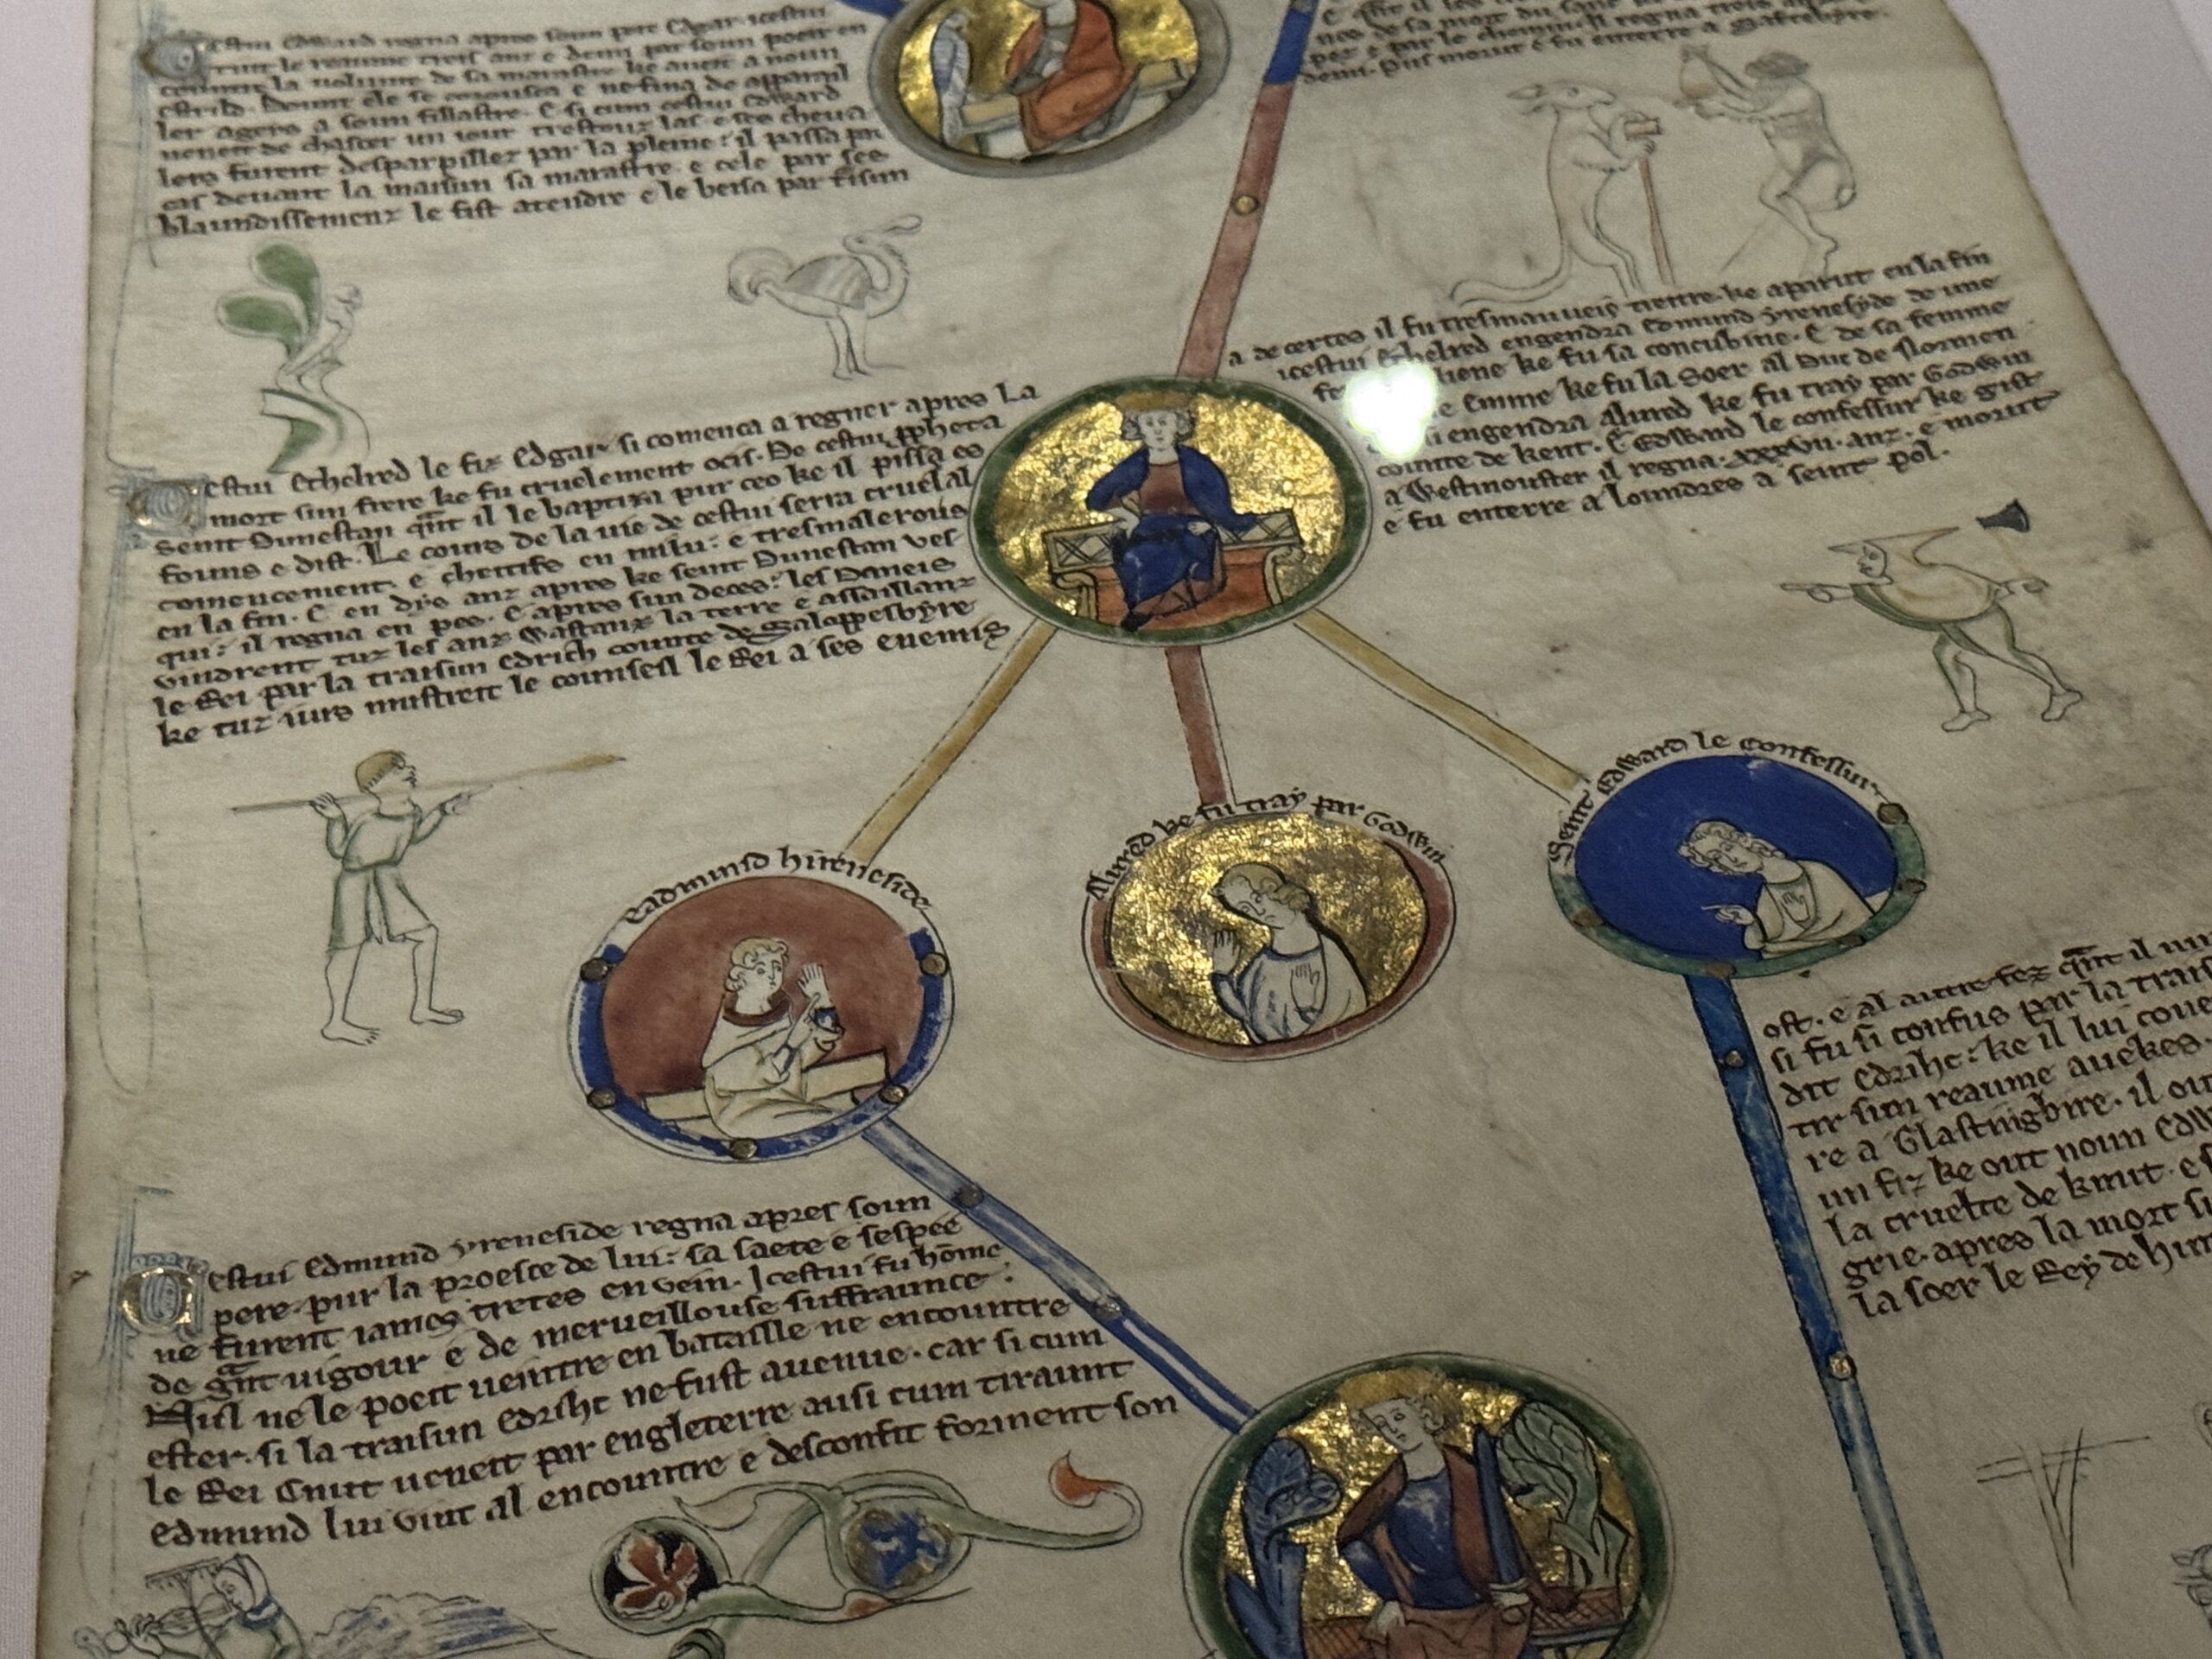 estui Edward regna apres soun pere Edgar. icestui
tint le reaume treis anz e demi par soun poeir en
countre la volunte de sa marastre ke aueit a noun
estrild. Dount ele se corousca e ne fina de apparail
ler agetz a soun fillastre. E si cum cestui Edward
veneit de chascer un iour trestouz las e ses cheua
lers furent desparpillez par la pleine: il passa par
cas deuant la maisun sa marastre. e cele par ses
blaundissemenz le fist atendre e le beisa par
nes de sa mort du sanc
pez e par le chemin. Il regna treis anz e
demi. Puis morut e fu enterre a
Cestui Ethelred le fiz Edgar si comenca a regner apres la
mort sun frere ke fu cruelement ocis. De cestui ppheta
seint Dunestan qnt il le baptiza pur ceo ke il pissa es
founs e dist. Le cours de la uie de cestui serra cruel al
comencement. e cheitifs en miliu. e tresmalerous
en la fin. E en dys anz apres ke seint Dunestan ves
qui: il regna en pees. E apres sun deces: les Daneis
vindrent tuz les anz Wastanz la terre e assaillanz
le Rei par la traisun Edrich counte de Saloppesbyre
ke tuz iurs mustreit le counseil le Rei a ses enemis
a decertes il fu tresmaueis trettre. ke aparut en la fin
icestui Ethelred engendra Edmund yreneside de une
liene ke fu sa concubine. E de sa femme
e Emme ke fu la Soer al Duc de Normen
i engendra Alured ke fu tray par Godwin
counte de kent. E Edward le confessur ke gist
a Westmouster il regna. xxxvii. anz. e morut
e fu enterre a loundres a seint pol.
Eadmund hireneside
Alured ke fu tray par Godwin
Seint Edward le Confessur
Cestui Edmund yreneside regna apres soun
pere. pur la proesce de lui: sa saete e sespee
ne furent iames tretes en vein. Icestui fu home
de gnt uigour e de merueillouse suffraunce:
Nul ne le poeit ueintre en bataille ne encountre
ester. si la traisun Edriht ne fust auenue. car si cum
le Rei Cnut ueneit par engleterre ausi cum tiraunt
Edmund lui vint al encountre e desconfit forment son
ost. e al autre fez qnt il
si fu si confus par la trais
dit Edriht: ke il lui coue
tir sun reaume auekes.
re a Glastingbire. il out
un fiz ke out noun Edw
la cruelte de knut. e s
grie. apres la mort si
la soer le Rey de hun